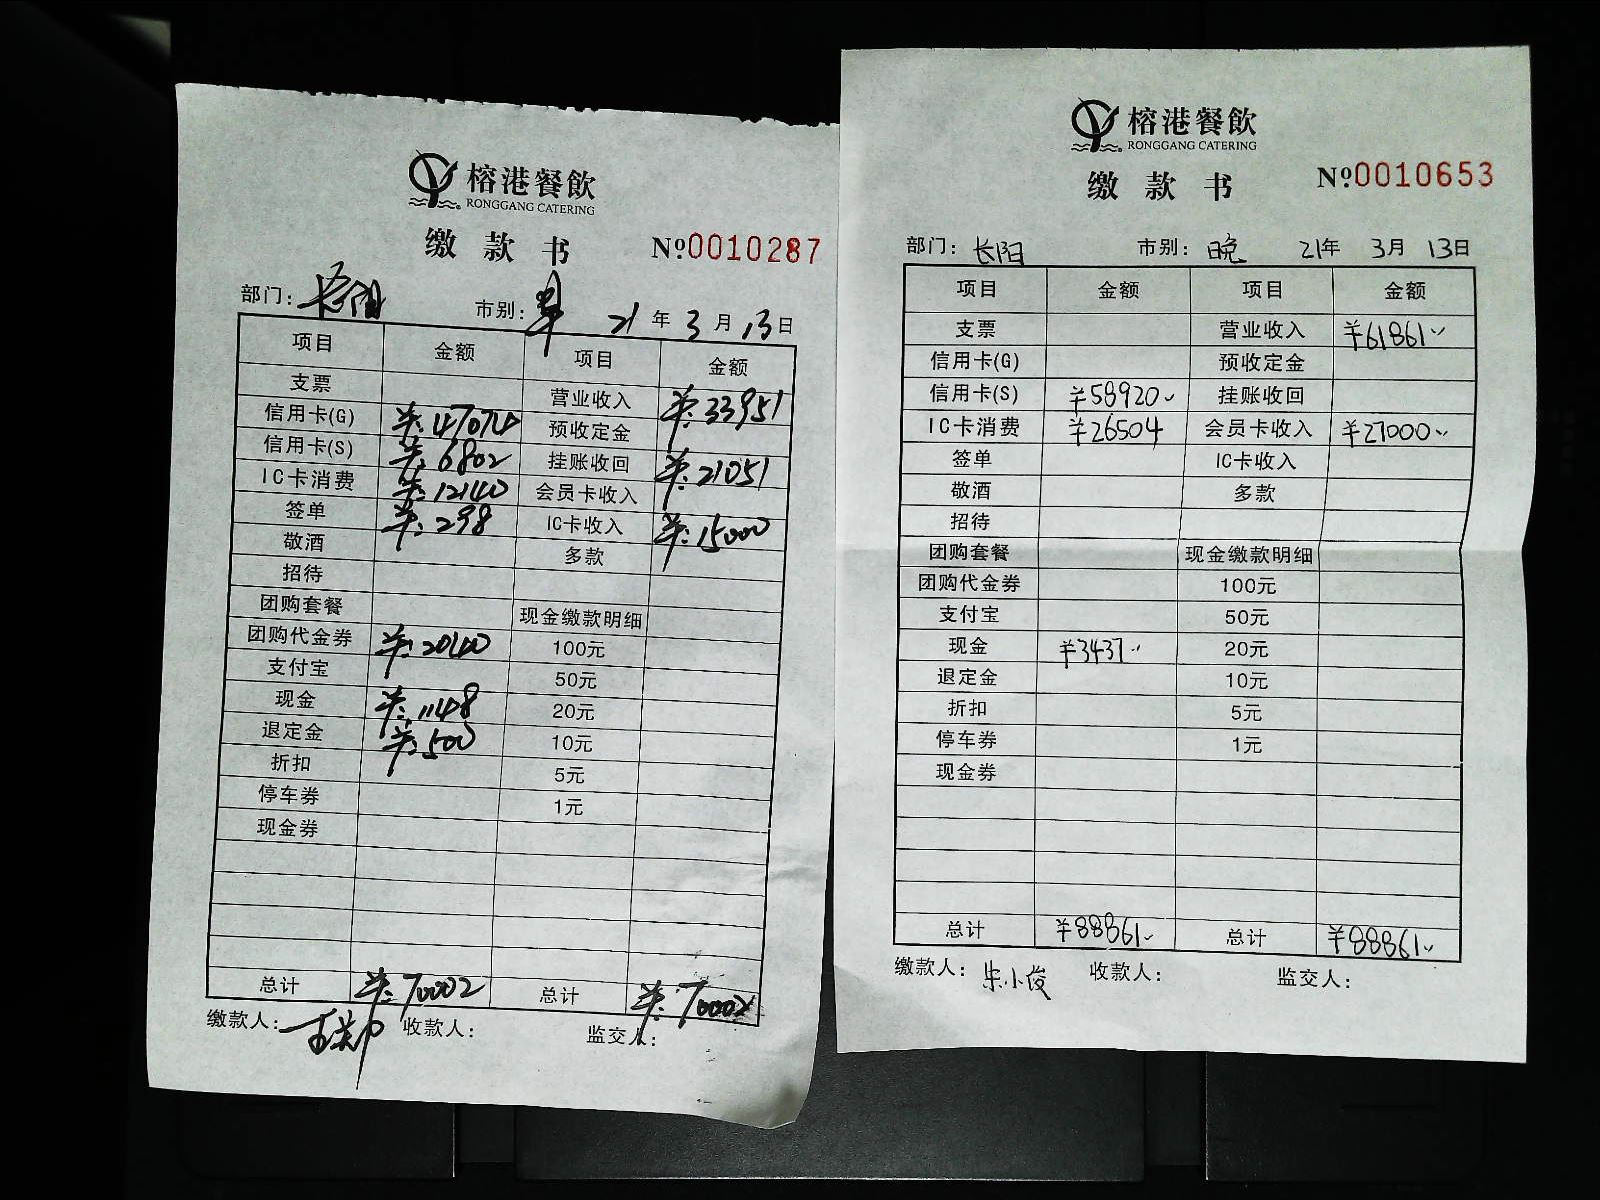 榕港餐飲
RONGGANG CATERING
缴款书 №0010287
部门: 长阳 市别: 早 21年 3月 13日
项目 金额 项目 金额
支票 营业收入 ¥:33951
信用卡(G) ¥:47074 预收定金
信用卡(S) ¥:6802 挂账收回 ¥:21051
IC卡消费 ¥:12140 会员卡收入
签单 ¥:298 IC卡收入 ¥:15000
敬酒 多款
招待
团购套餐 现金缴款明细
团购代金券 ¥:2040 100元
支付宝 50元
现金 ¥:1148 20元
退定金 ¥:500 10元
折扣 5元
停车券 1元
现金券
总计 ¥:70002 总计 ¥:70002
缴款人: 收款人: 监交人:
榕港餐飲
RONGGANG CATERING
缴款书 №0010653
部门: 长阳 市别: 晚 21年 3月 13日
项目 金额 项目 金额
支票 营业收入 ¥61861
信用卡(G) 预收定金
信用卡(S) ¥58920 挂账收回
IC卡消费 ¥26504 会员卡收入 ¥27000
签单 IC卡收入
敬酒 多款
招待
团购套餐 现金缴款明细
团购代金券 100元
支付宝 50元
现金 ¥3437 20元
退定金 10元
折扣 5元
停车券 1元
现金券
总计 ¥88861 总计 ¥88861
缴款人: 朱小俊 收款人: 监交人: